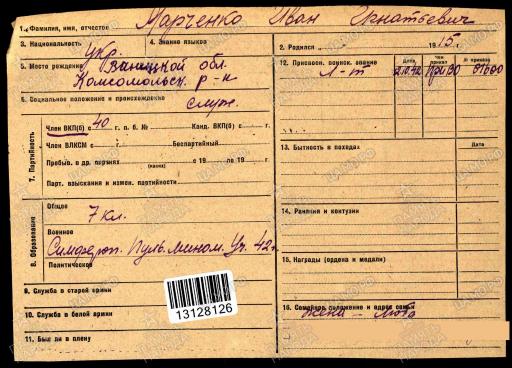 1. Фамилия, имя, отчество Марченко Иван Игнатьевич
3. Национальность укр.
4. Знание языков
2. Родился 1915 г.
5. Место рождения Виницкой обл.
Комсомольск. р-н
12. Присвоен. воинск. звание
Дата
Чей приказ
№ приказа
Л-т 2.10.42 01600
6. Социальное положение и происхождение служ.
7. Партийность
Член ВКП(б) с 40 г. п. б. № Канд. ВКП(б) с г.
Член ВЛКСМ с г. Беспартийный
Пребыв. в др. партиях с 19 по 19 г.
(каких)
Парт. взыскания и измен. партийности
13. Бытность в походах
Дата
8. Образование
Общее 7 кл.
Военное
Симфероп. Пуль. мином. Уч. 42 г.
Политическое
14. Ранения и контузии
15. Награды (ордена и медали)
9. Служба в старой армии
10. Служба в белой армии
11. Был ли в плену
13128126
16. Семейное положение и адрес семьи
жена - Люба